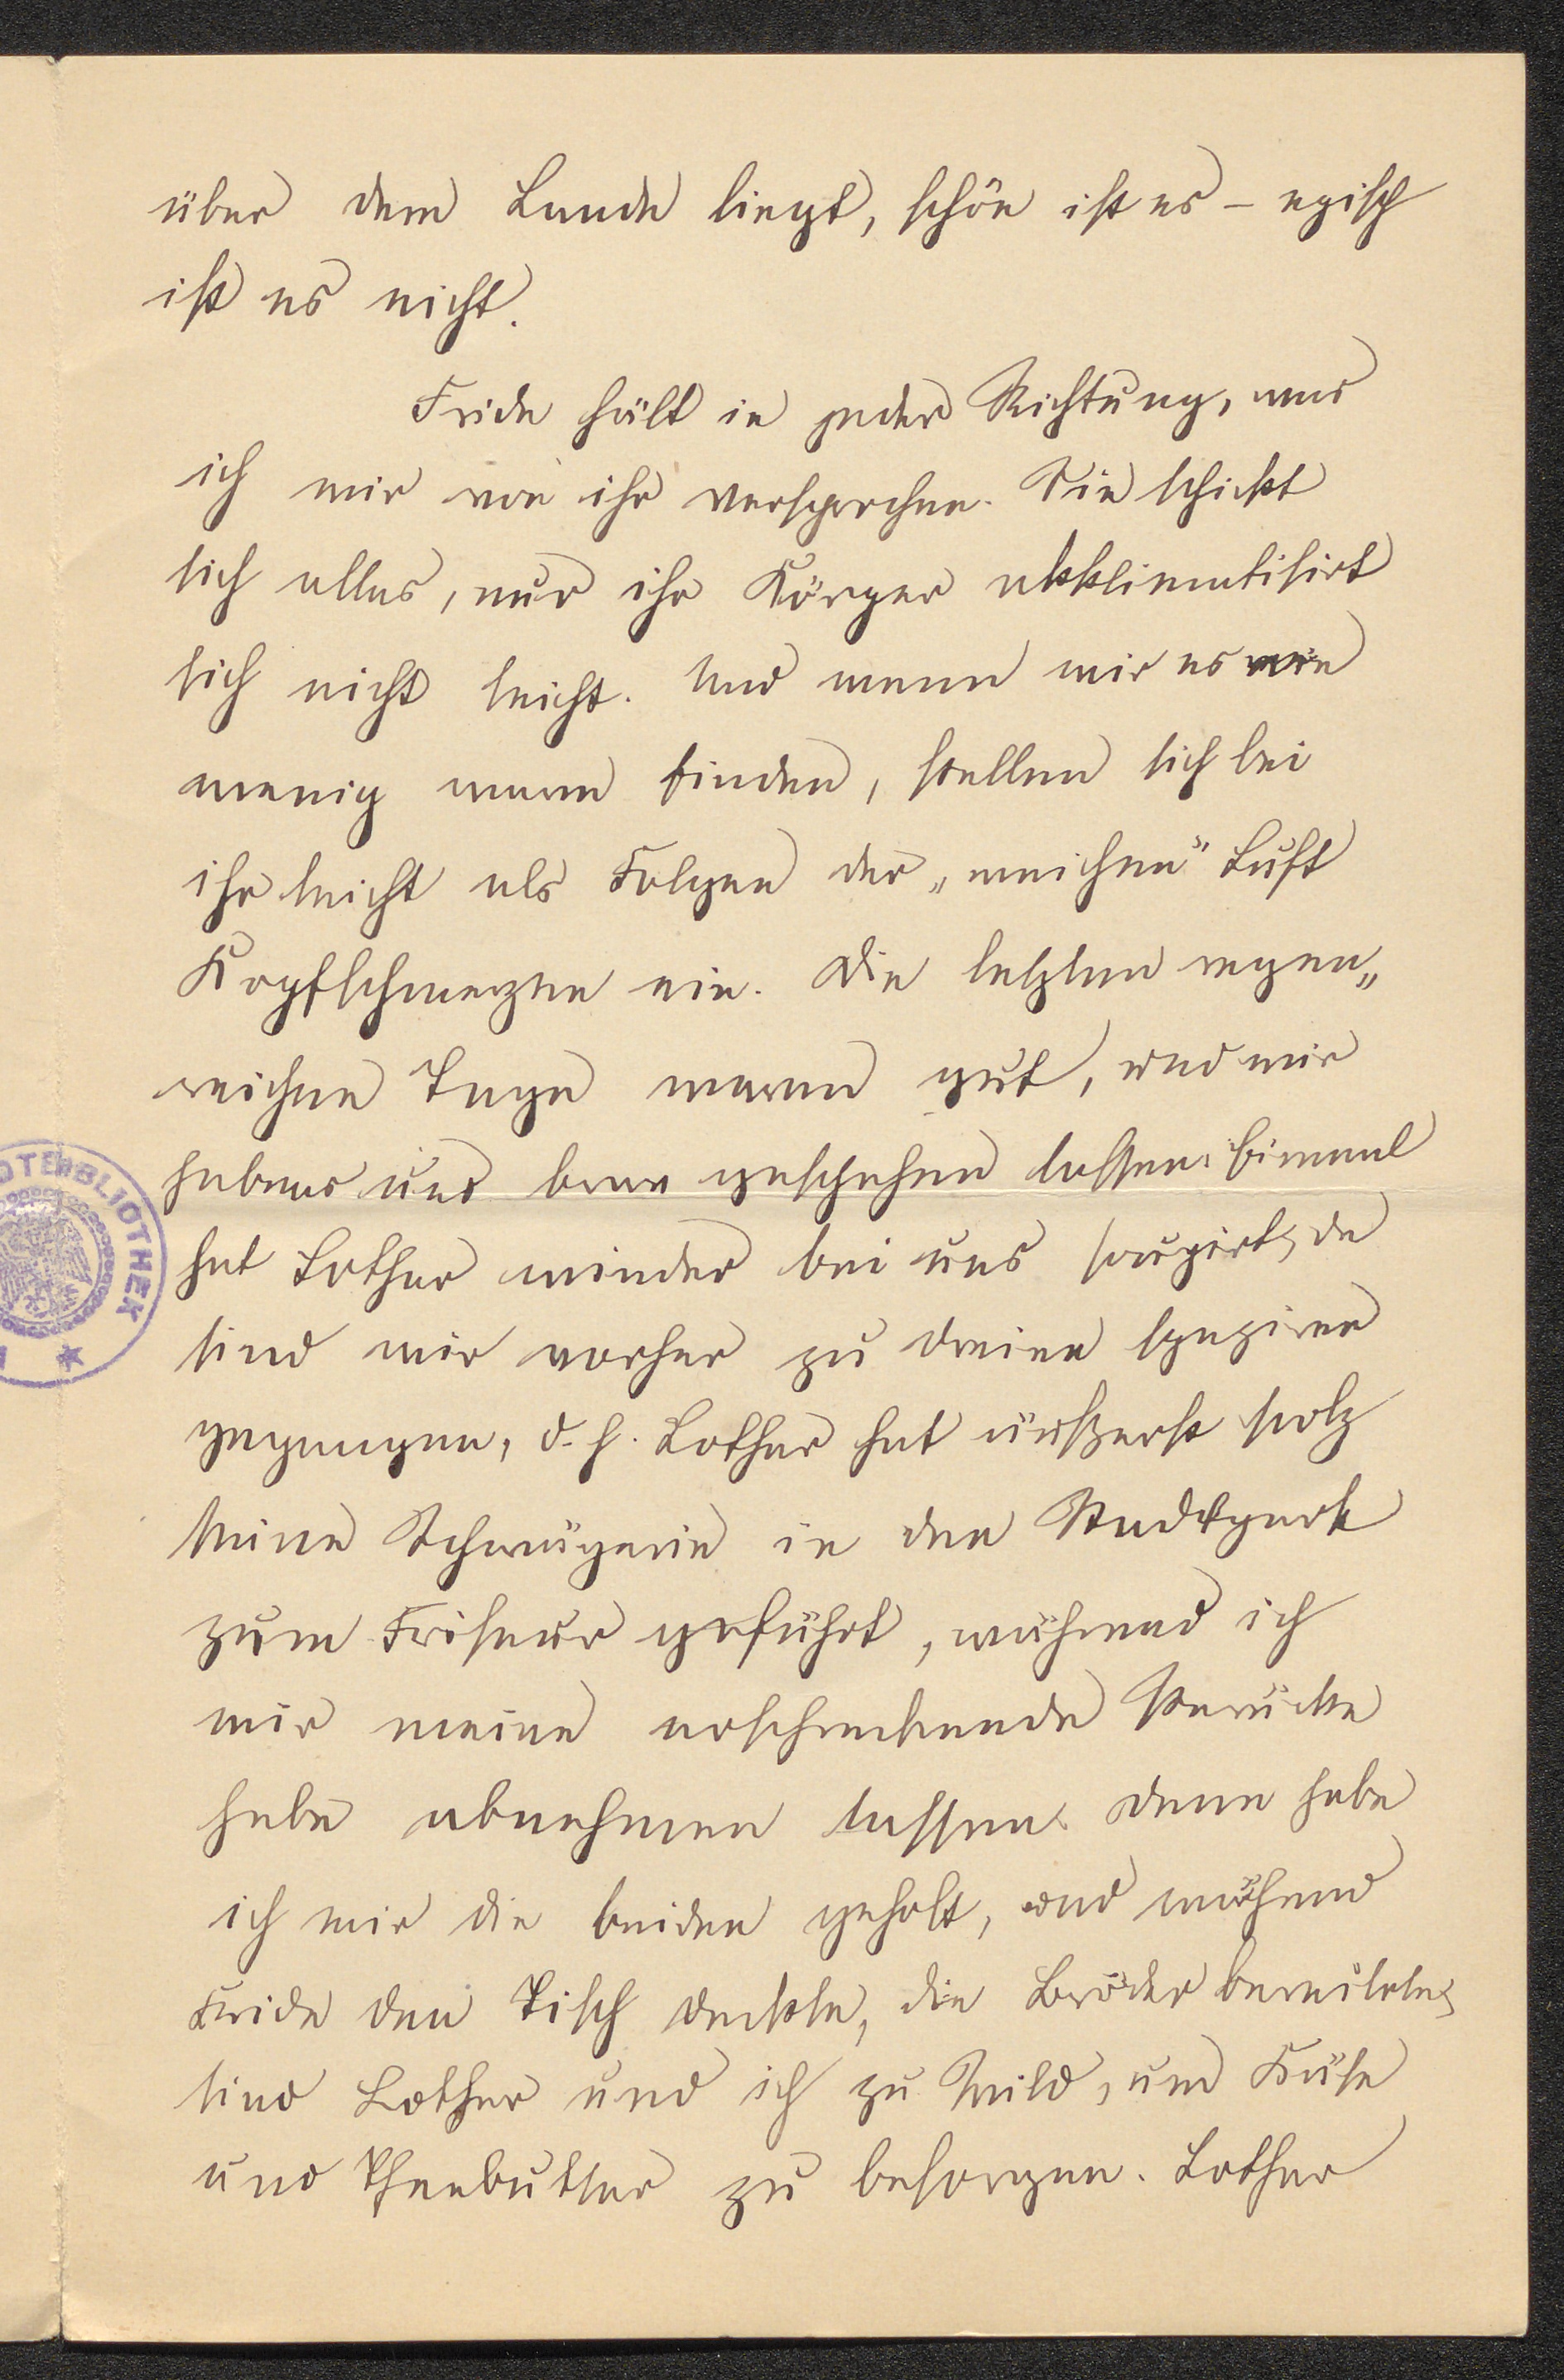 über dem Lande liegt, schön ist es – episch
ist es nicht.
Frida hält in jeder Richtung, was
ich mir von ihr versprochen. Sie schickt
sich alles, nur ihr Körper akklimatisirt
sich nicht leicht. Und wenn wir es
wenig warm finden, stellen sich bei
ihr leicht als Folgen der „weichen" Luft
Kopfschmerzen ein. Die letzten regen„
reichen Tage waren gut, und wir
habens uns brav geschehen lassen. Einmal
hat Lothar wieder bei uns soupirt, da
sind wir vorher zu dreien spaziren
gegangen, d. h. Lothar hat äußerst stolz
seine Schwägerin in den Stadtpark
zum Friseur geführt, während ich
mir meine erschreckende Perücke
habe abnehmen lassen. Dann habe
ich mir die beiden geholt, und während
Frida den Tisch deckte, die Bröder bereitete,
sind Lothar und ich zu Wild, um Käse
und Theebutter zu besorgen. Lothar
OTERBLIOTHEK